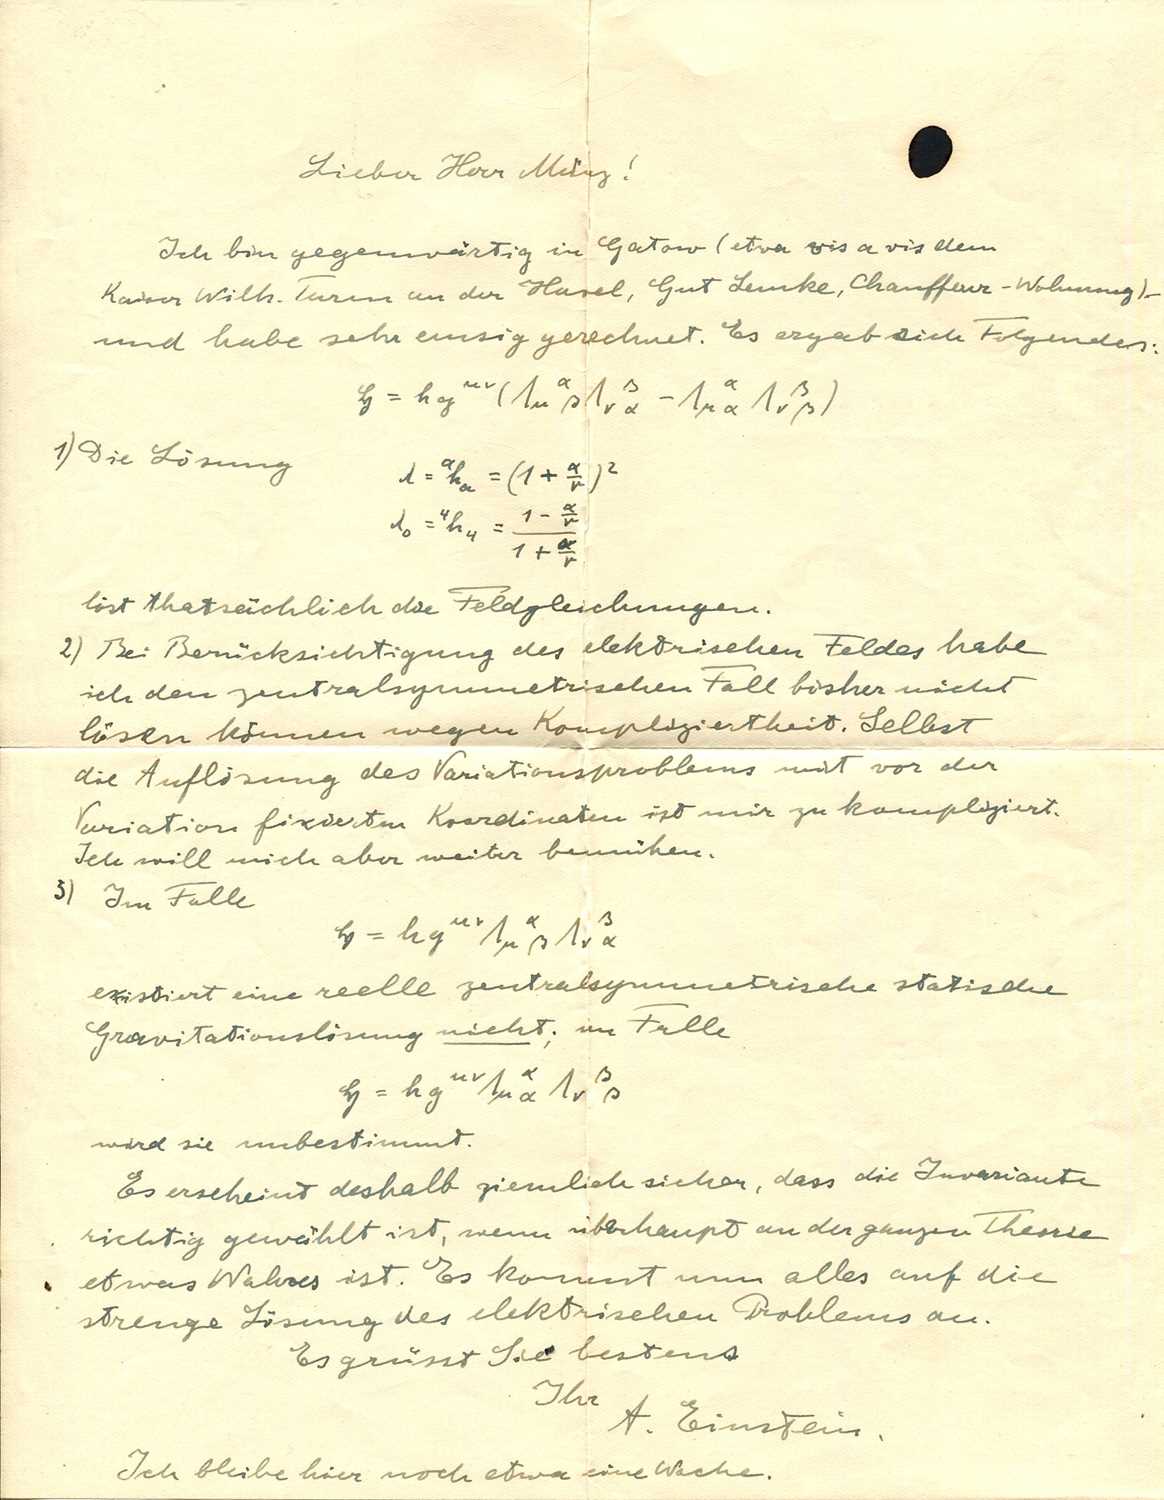 Lieber Herr Münz!
Ich bin gegenwärtig in Gatow (etwa vis a vis dem
Kaiser Wilh. Turm an der Havel, Gut Lemke, Chauffeur-Wohnung)–
und habe sehr emsig gerechnet. Es ergab sich Folgendes:
𝔥 = h g^{μν} (Λ_μ^α_β Λ_ν^β_α − Λ_μ^α_α Λ_ν^β_β)
1) Die Lösung
λ = ^a h_a = (1 + α/r)^2
λ_0 = ^4 h_4 = (1 − α/r)/(1 + α/r)
löst thatsächlich die Feldgleichungen.
2) Bei Berücksichtigung des elektrischen Feldes habe
ich den zentralsymmetrischen Fall bisher nicht
lösen können wegen Kompliziertheit. Selbst
die Auflösung des Variationsproblems mit vor der
Variation fixierten Koordinaten ist mir zu kompliziert.
Ich will mich aber weiter bemühen.
3) Im Falle
𝔥 = h g^{μν} Λ_μ^α_β Λ_ν^β_α
existiert eine reelle zentralsymmetrische statische
Gravitationslösung nicht; im Falle
𝔥 = h g^{μν} Λ_μ^α_α Λ_ν^β_β
wird sie unbestimmt.
Es erscheint deshalb ziemlich sicher, dass die Invariante
richtig gewählt ist, wenn überhaupt an der ganzen Theorie
etwas Wahres ist. Es kommt nun alles auf die
strenge Lösung des elektrischen Problems an.
Es grüsst Sie bestens
Ihr
A. Einstein.
Ich bleibe hier noch etwa eine Woche.